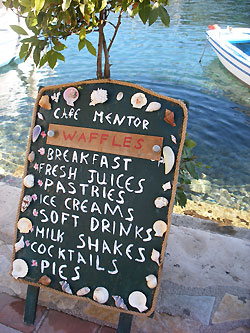 CAFE MENTOR
WAFFLES
BREAKFAST
FRESH JUICES
PASTRIES
ICE CREAMS
SOFT DRINKS
MILK SHAKES
COCKTAILS
PIES